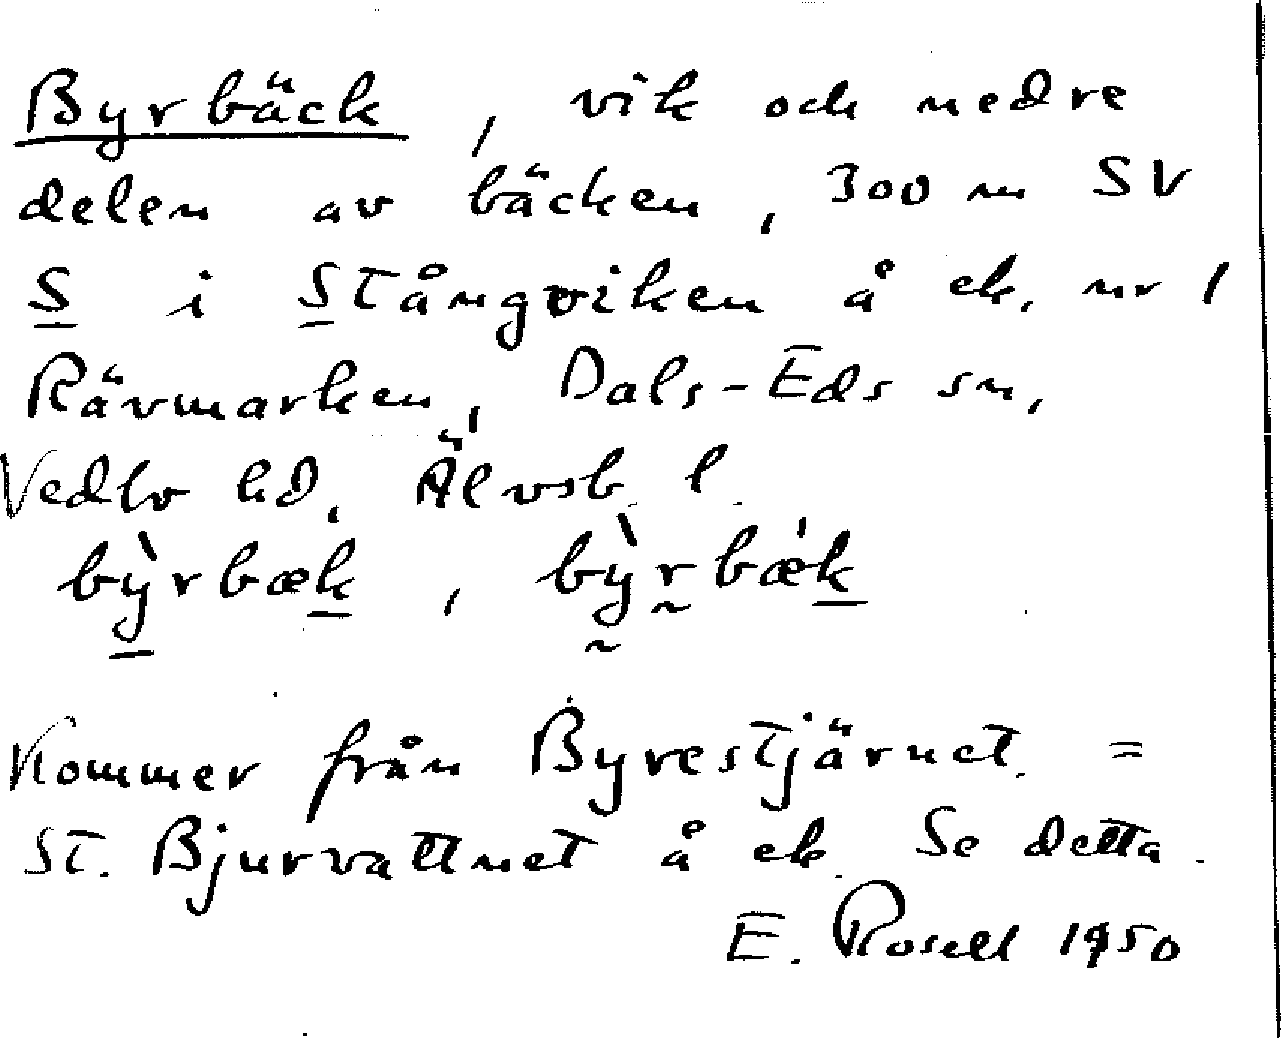 Byrbäck, vik och nedre
delen av bäcken, 300 m SV
S i Stångviken å ek. nr 1
Rävmarken, Dals-Eds sn,
Vedbo hd, Älvsb. l.
bỳ̱rbæḵ, bỳ̰r̰bæ̍ḵ
Kommer från Byrestjärnet =
St. Bjurvattnet å ek. Se detta.
E. Rosell 1950